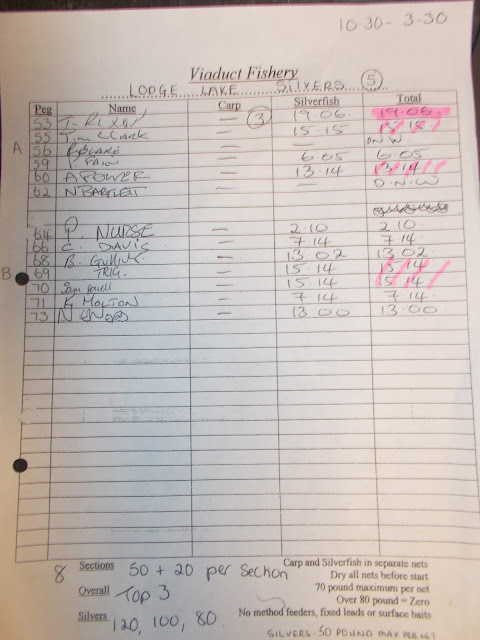 10.30 - 3-30
Viaduct Fishery
LODGE LAKE SILVERS 5
Peg Name Carp Silverfish Total
A
53 T. RIXON — 3 19.06. 19.06.
55 Tim Clark — 15-15 15/15
56 — DNW
59 P — 6.05 6.05
60 A POWER — 13.14 13/14
62 N BARTLET — — D.N.W
64 P. NURSE — 2.10 2.10.
66 C. DAVIS — 7.14 7.14.
68 B. — 13.02 13.02
B
69 TRIG. — 15.14 15.14
70 Sam Powell — 15.14 15.14
71 K MOLTON — 7.14 7.14
73 N — 13.00 13.00
8 Sections 50 + 20 per Section
Overall Top 3
Silvers 120, 100, 80
Carp and Silverfish in separate nets
Dry all nets before start
70 pound maximum per net
Over 80 pound = Zero
No method feeders, fixed leads or surface baits
SILVERS. 50 POUND MAX PER NET